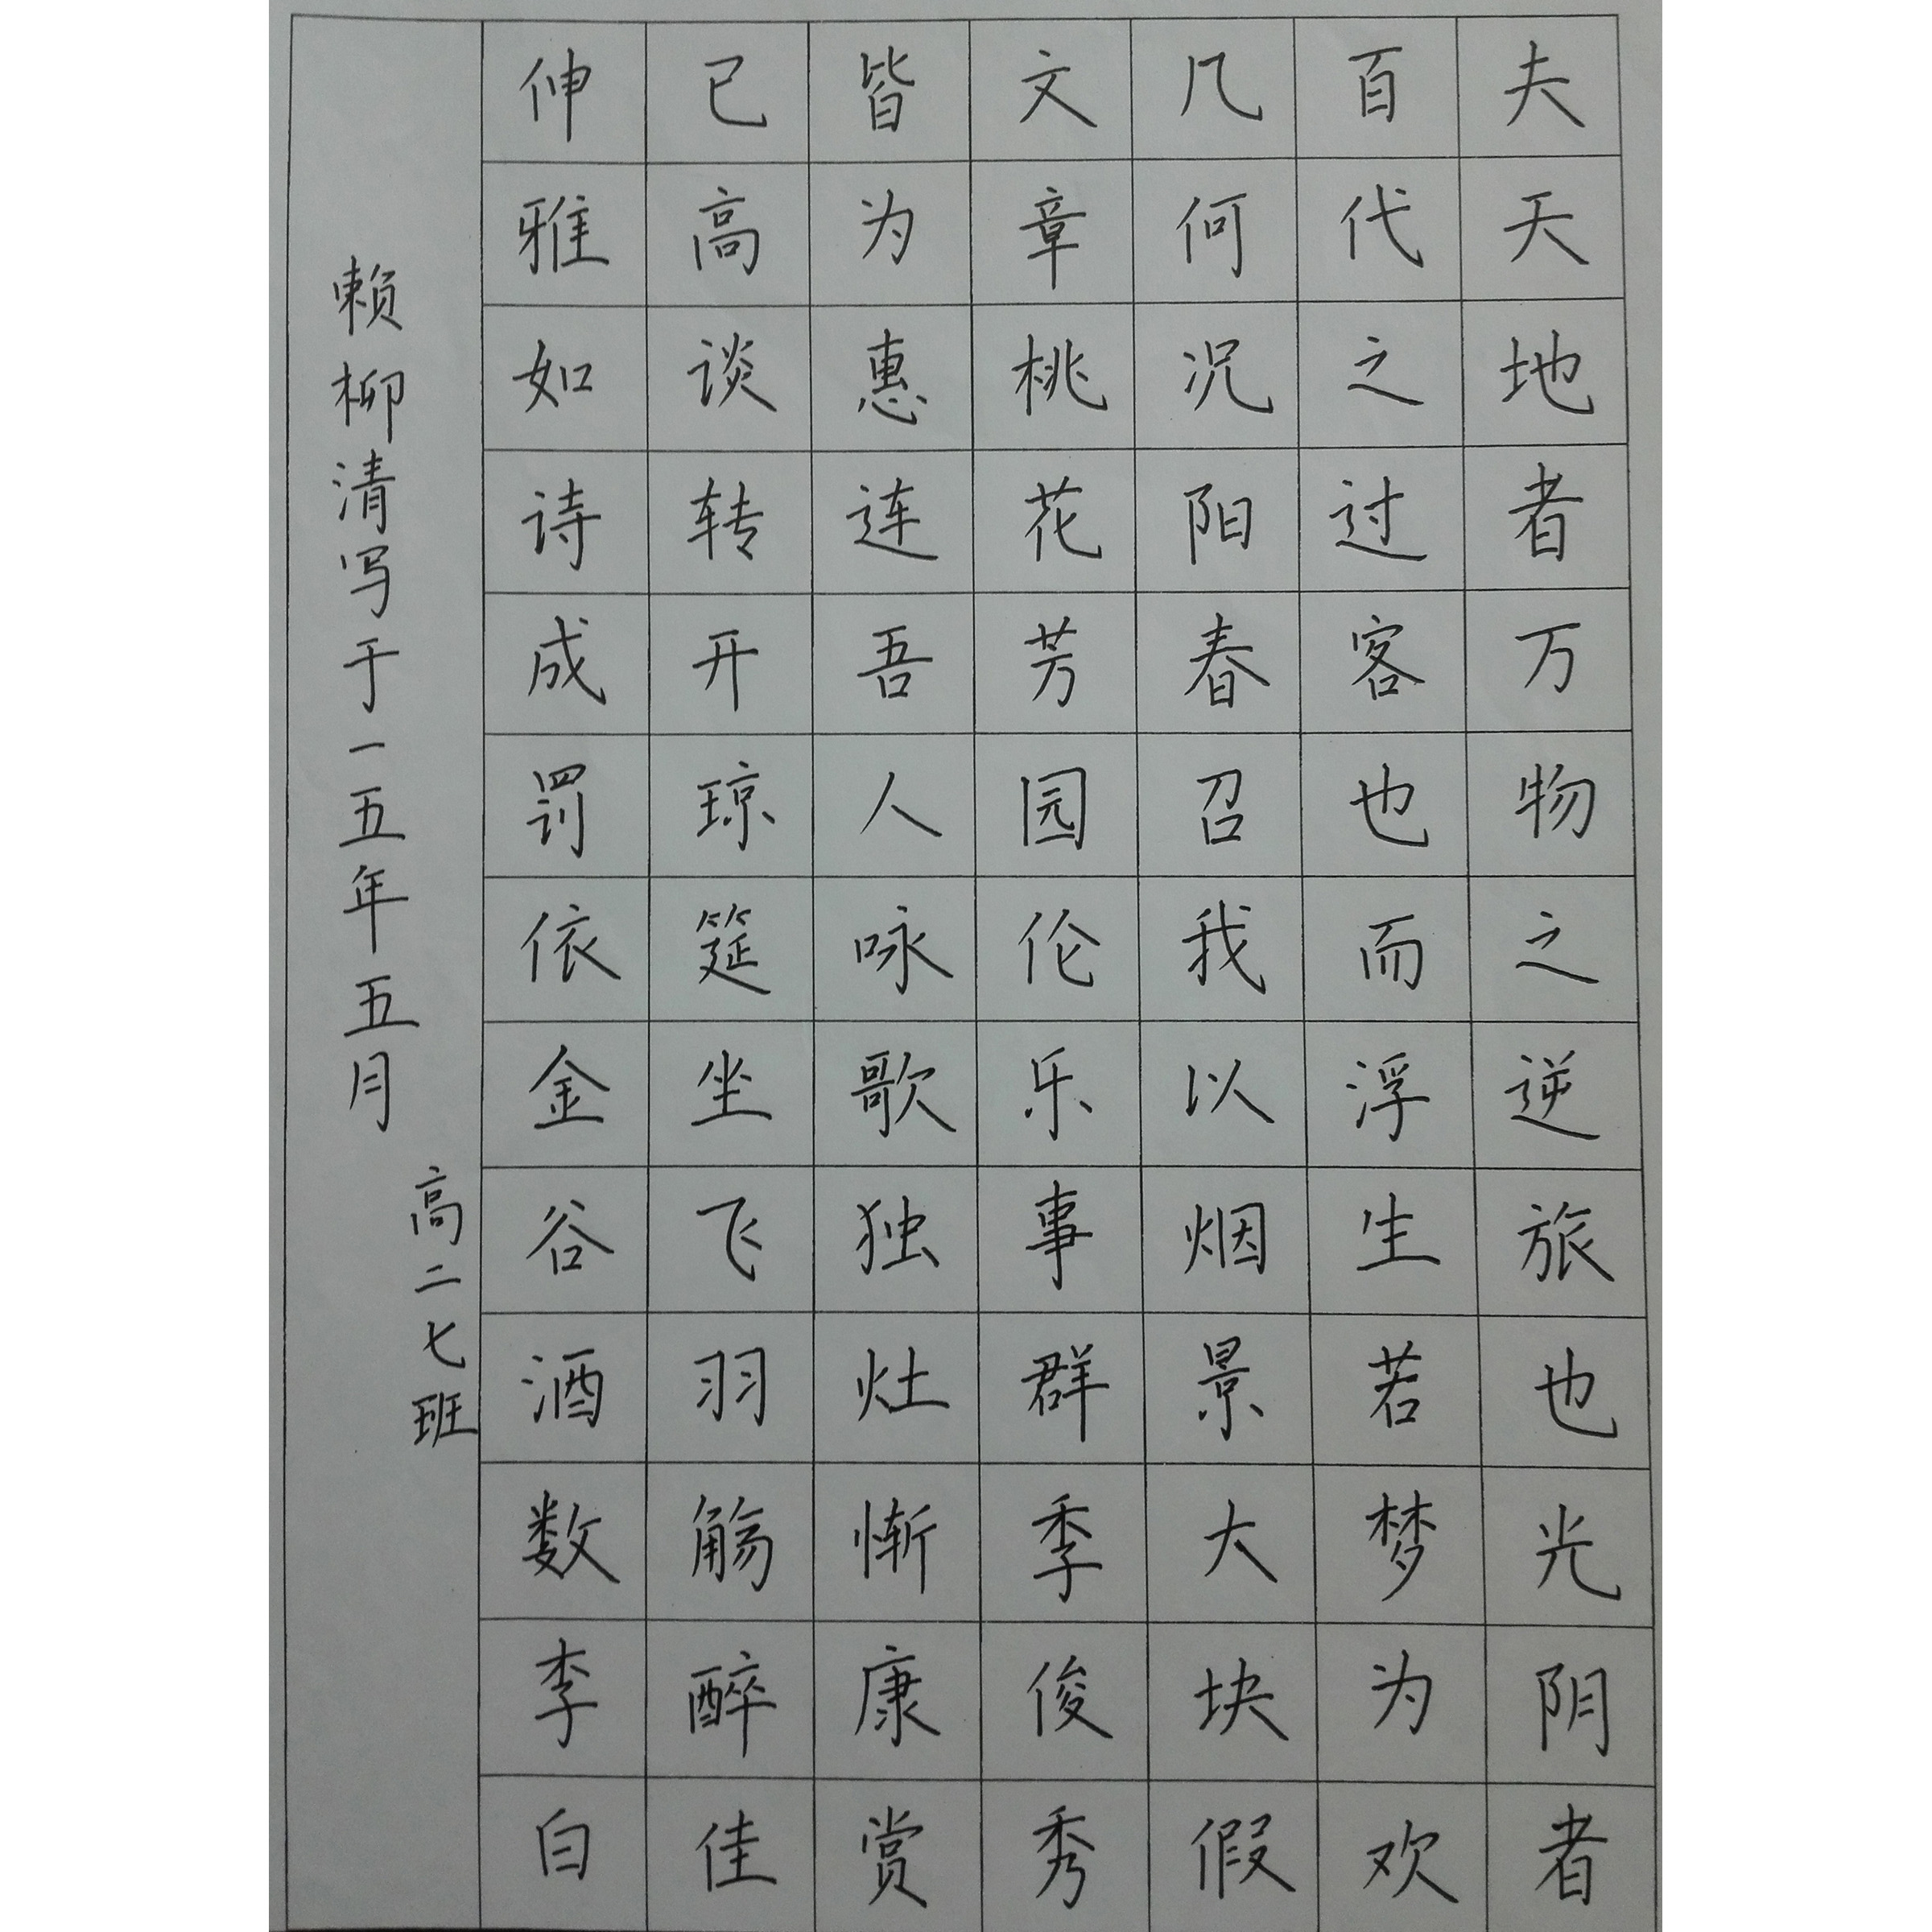 夫天地者万物之逆旅也光阴者
百代之过客也而浮生若梦为欢
几何况阳春召我以烟景大块假
文章桃花芳园伦乐事群季俊秀
皆为惠连吾人咏歌独灶惭康赏
已高谈转开琼筵坐飞羽觞醉佳
伸雅如诗成罚依金谷酒数李白
赖柳清写于一五年五月
高二七班